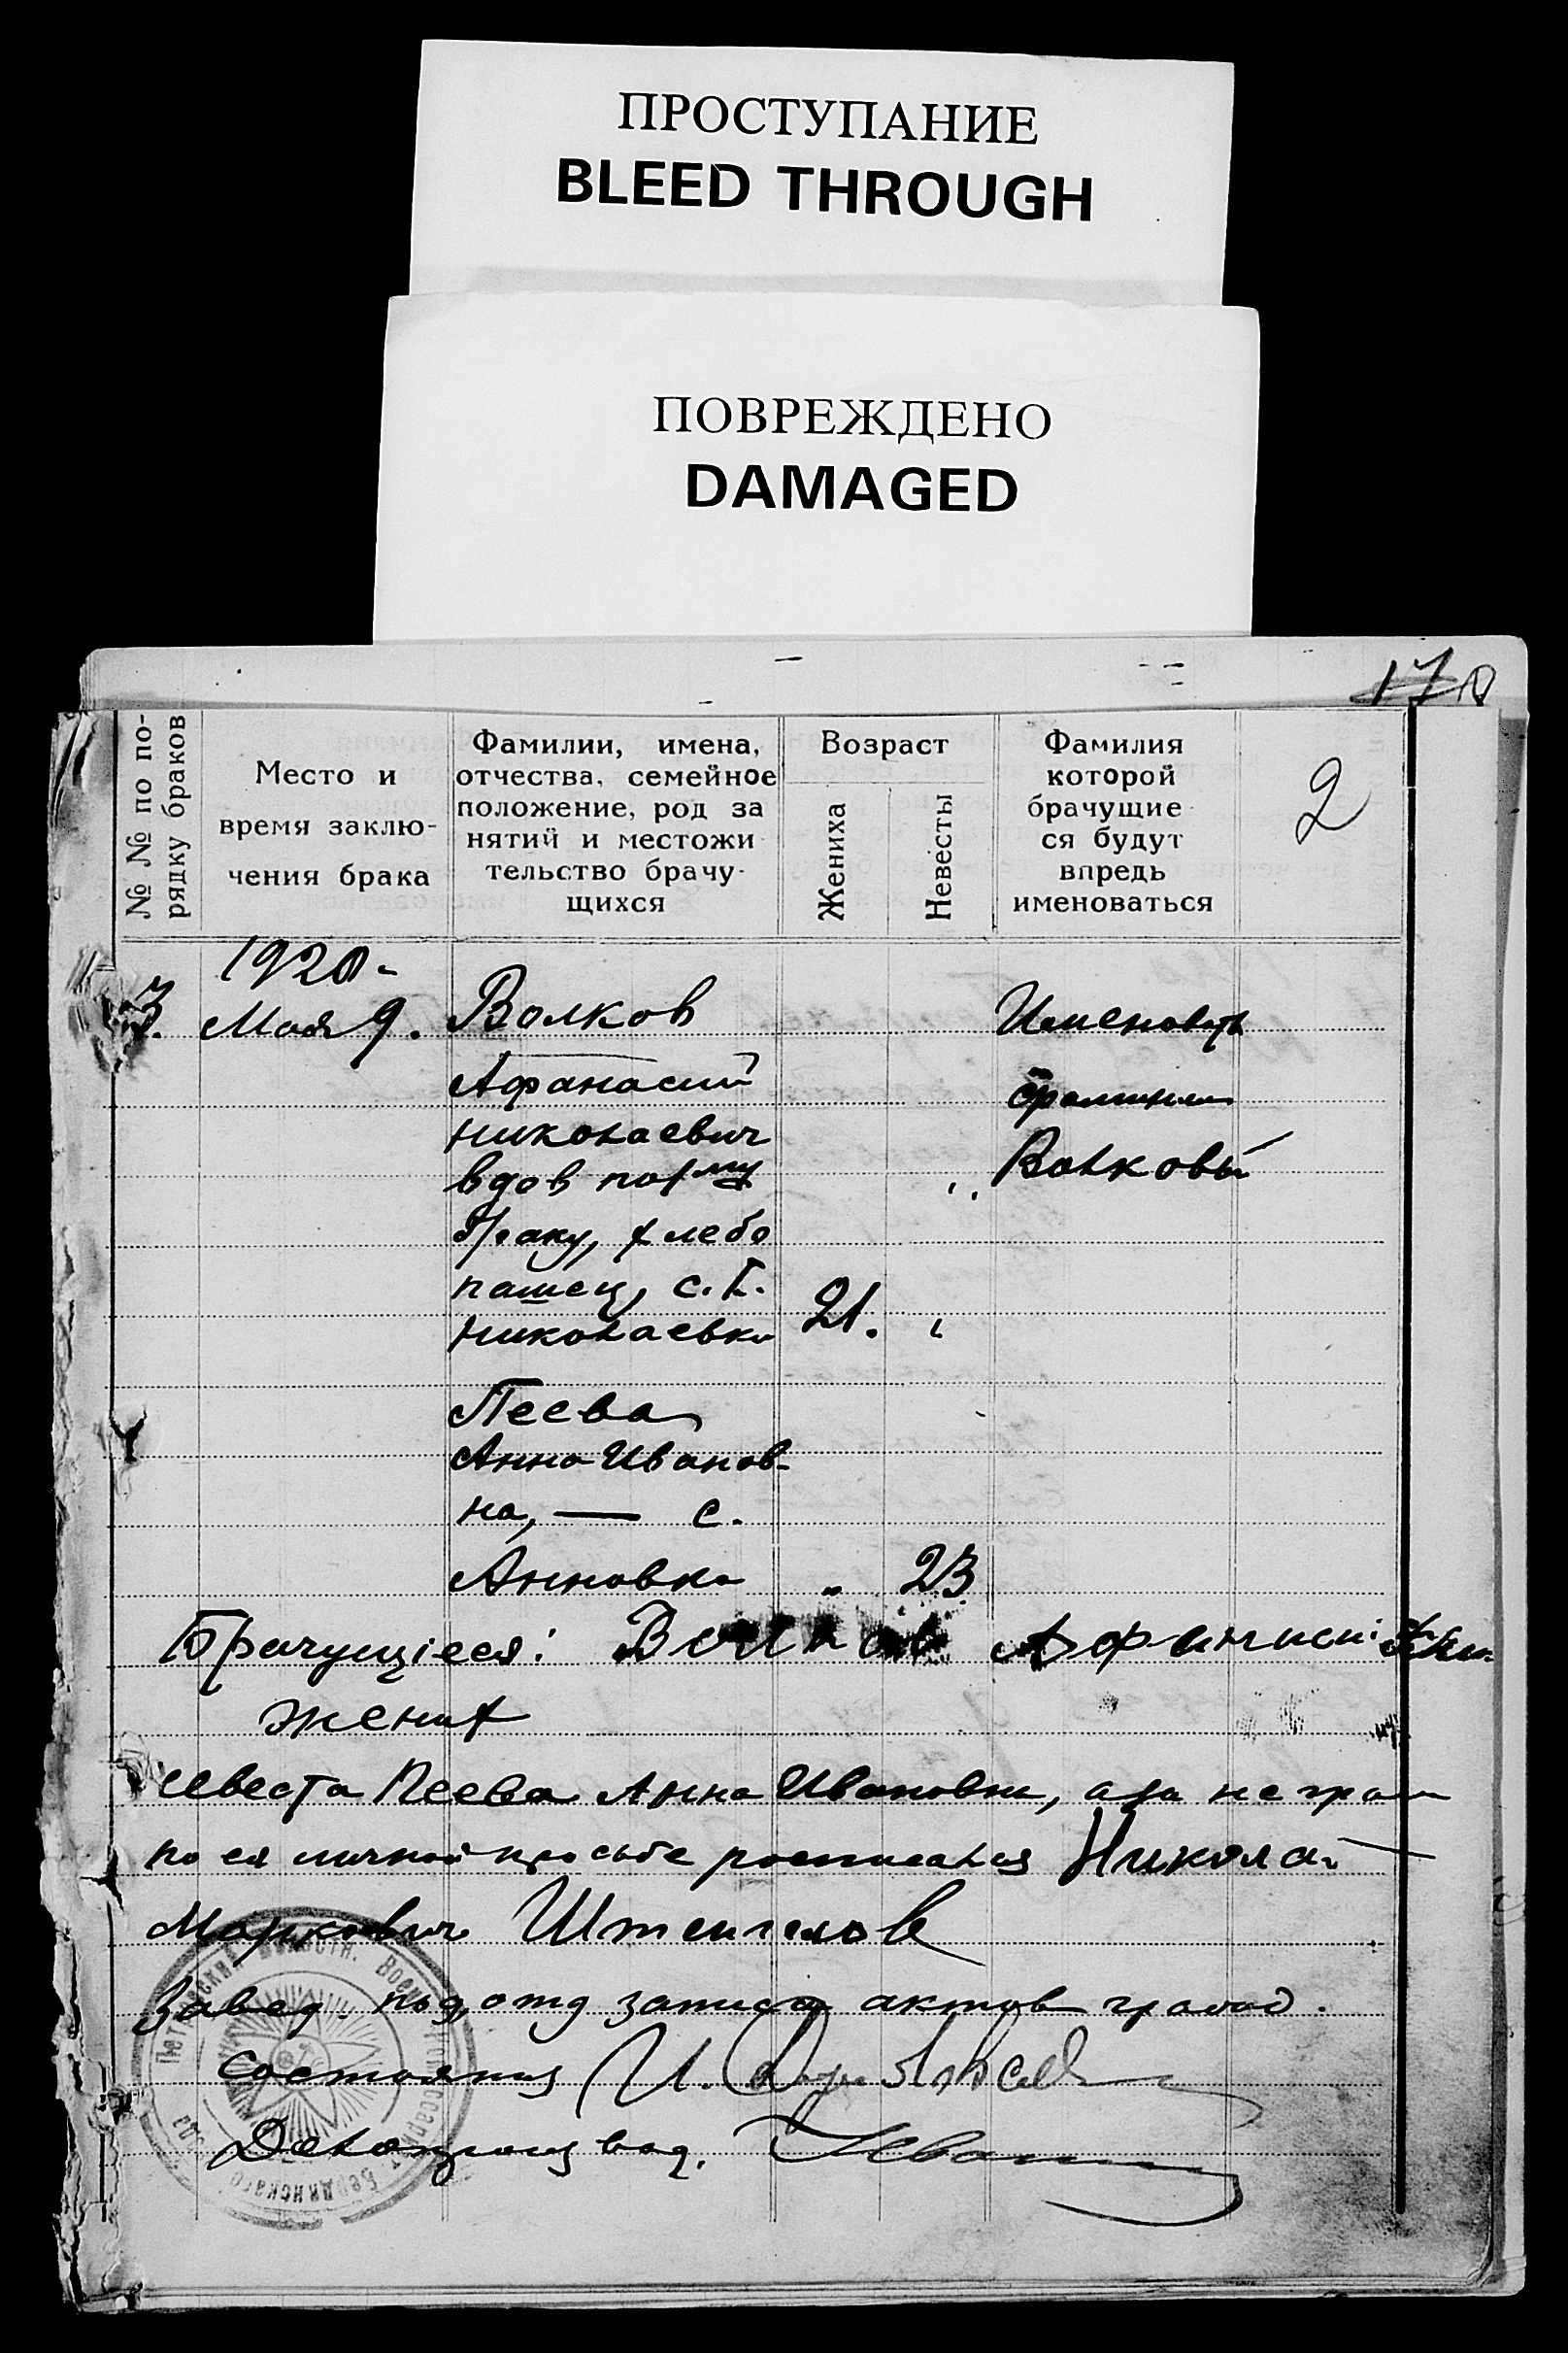 ПРОСТУПАНИЕ
BLEED THROUGH
ПОВРЕЖДЕНО
DAMAGED
№ № по по-
рядку браков
Место и
время заклю-
чения брака
Фамилии, имена,
отчества, семейное
положение, род за
нятий и местожи
тельство брачу-
щихся
Возраст
Жениха
Невесты
Фамилия
которой
брачущие
ся будут
впредь
именоваться
2
1920-
3. Мая 9. Волков
Афанасий
Николаевич
вдов по 1му
браку, хлебо
пашец, с. Б.
Николаевка 21.
Именовать
фамилии
Волковы
Пеева
Анна Иванов-
на, — с.
Анновка " 23
Брачущіеся: Волков Афанаси
жених
невеста Пеева Анна Ивановна, а за не грам
по ея личной просьбе росписался Никола
Маркович
Завед. подотд записа актов гражд.
состояния И.
Делопроизвод.